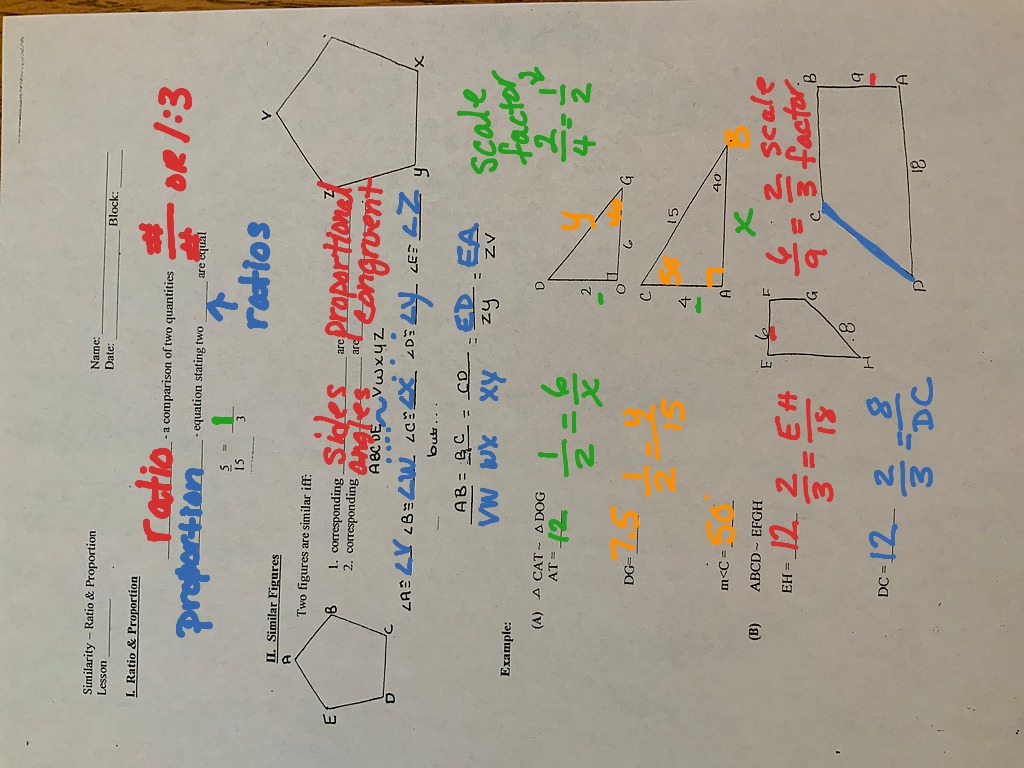 Name:
Similarity – Ratio & Proportion
Date: Block:
Lesson
I. Ratio & Proportion
ratio - a comparison of two quantities #/# OR 1:3
proportion - equation stating two ratios are equal
5/15 = 1/3
II. Similar Figures
Two figures are similar iff:
1. corresponding sides are proportional
2. corresponding angles are congruent
ABCDE ~ VWXYZ
A B C D E
V X y Z
∠A≅ ∠V ∠B≅ ∠W ∠C≅ ∠X ∠D≅ ∠Y ∠E≅ ∠Z
but...
AB/VW = BC/WX = CD/XY = ED/ZY = EA/ZV
Example:
scale factor
2/4 = 1/2
(A) △ CAT ~ △ DOG
AT = 12
1/2 = 6/x
D 2 O 6 G y 40
DG= 7.5
1/2 = y/15
C 4 A 15 40 B 50 x
m<C = 50°
(B) ABCD ~ EFGH
EH = 12
2/3 = EH/18
6/9 = 2/3 scale factor
E 6 F G 8 H
B 9 A 18 D C
DC = 12
2/3 = 8/DC